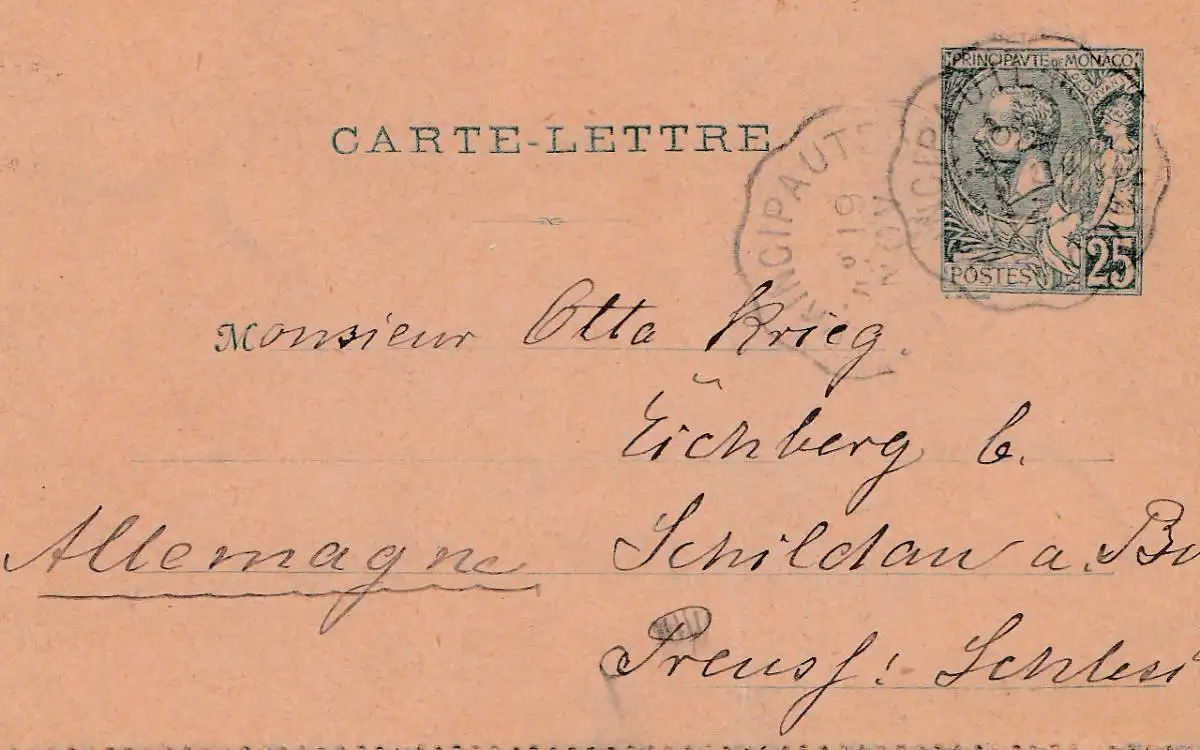 PRINCIPAVTE DE MONACO
CARTE-LETTRE
PRINCIPAUTÉ
19
NOV
POSTES 25
Monsieur Otto Krieg.
Eichberg b.
Allemagne
Schildau a. Bo
Preuss: Schlesi